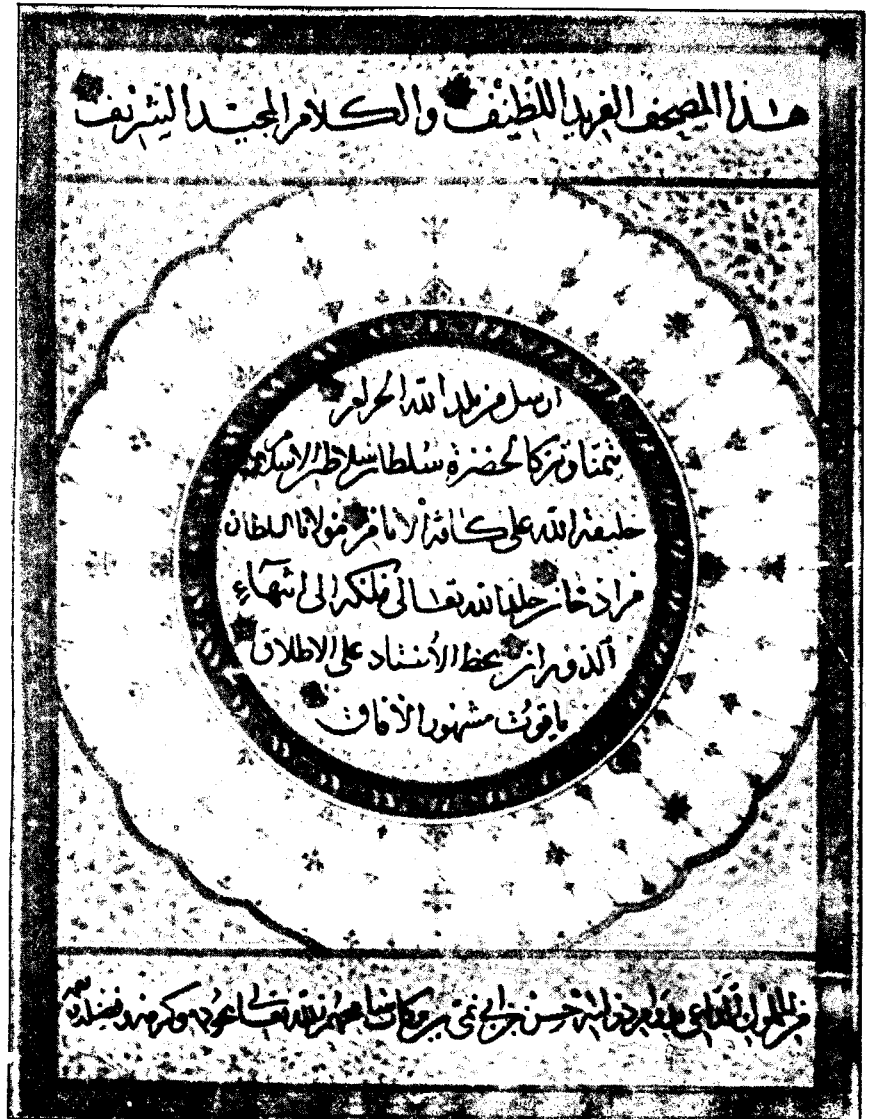 هذا المصحف الفريد اللطيف والكلام المجيد الشريف
ارسل من بلد الله الحرام
تيمنا وتبركا لحضرة سلطان سلاطين الاسلام
خليفة الله على كافة الأنام مولانا السلطان
مراد خان خلد الله تعالى ملكه الى انتهاء
الدوران بخط الأستاد على الاطلاق
ياقوت مشهور الآفاق
من المملوك الداعي دولته حسن بن ابي نمي بن بركات الله تعالى بجوده وكرمه